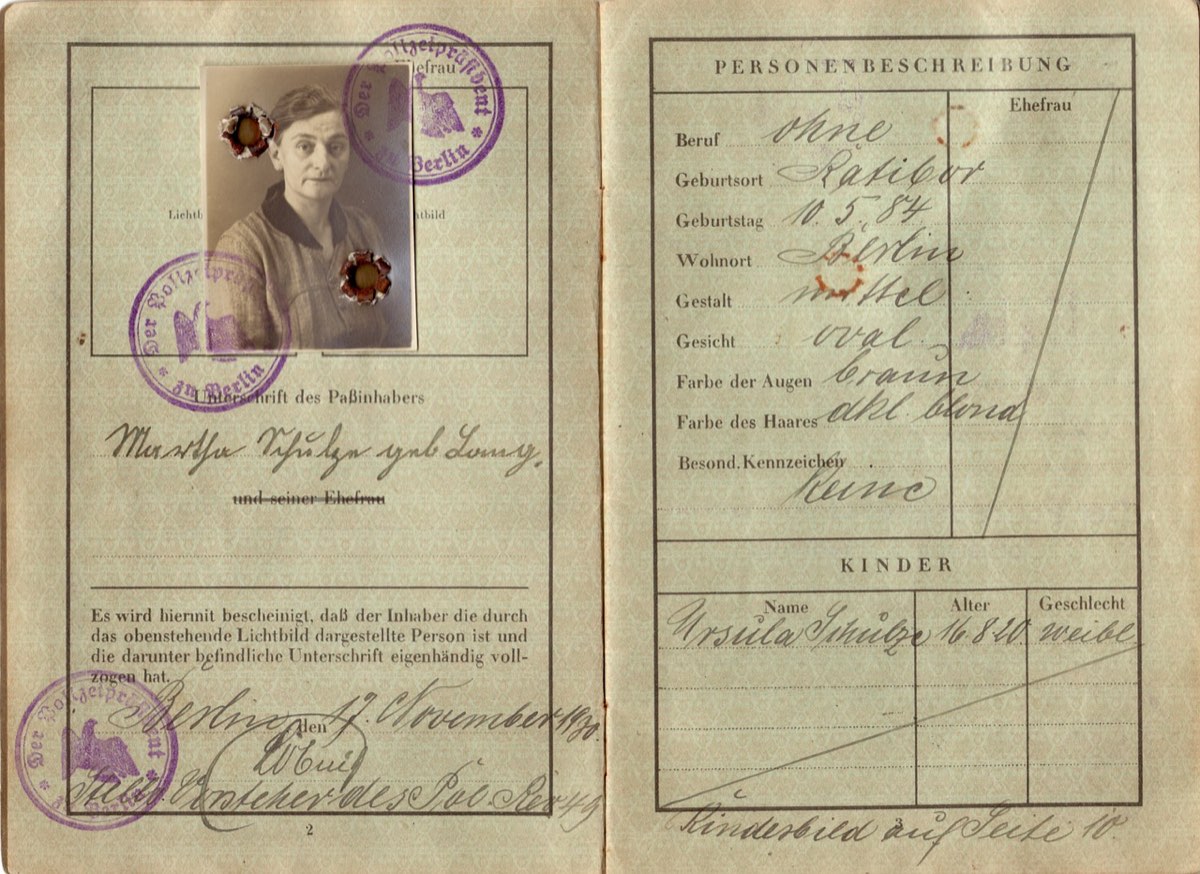 Ehefrau
Der Polizeipräsident
zu Berlin
Lichtb
htbild
Der Polizeipräsident
zu Berlin
Unterschrift des Paßinhabers
Martha Schulze geb Lang.
und seiner Ehefrau
Es wird hiermit bescheinigt, daß der Inhaber die durch
das obenstehende Lichtbild dargestellte Person ist und
die darunter befindliche Unterschrift eigenhändig voll-
zogen hat.
Berlin, den 17. November 1930.
Der Polizeipräsident
zu Berlin
Vorsteher des Pol. Rev 49
2
PERSONENBESCHREIBUNG
Ehefrau
Beruf ohne
Geburtsort Ratibor
Geburtstag 10. 5. 84
Wohnort Berlin
Gestalt mittel
Gesicht oval
Farbe der Augen braun
Farbe des Haares dkl. blond
Besond. Kennzeichen
Keine
KINDER
Name Alter Geschlecht
Ursula Schulze 16.8.20. weibl.
Kinderbild auf Seite 10.
3